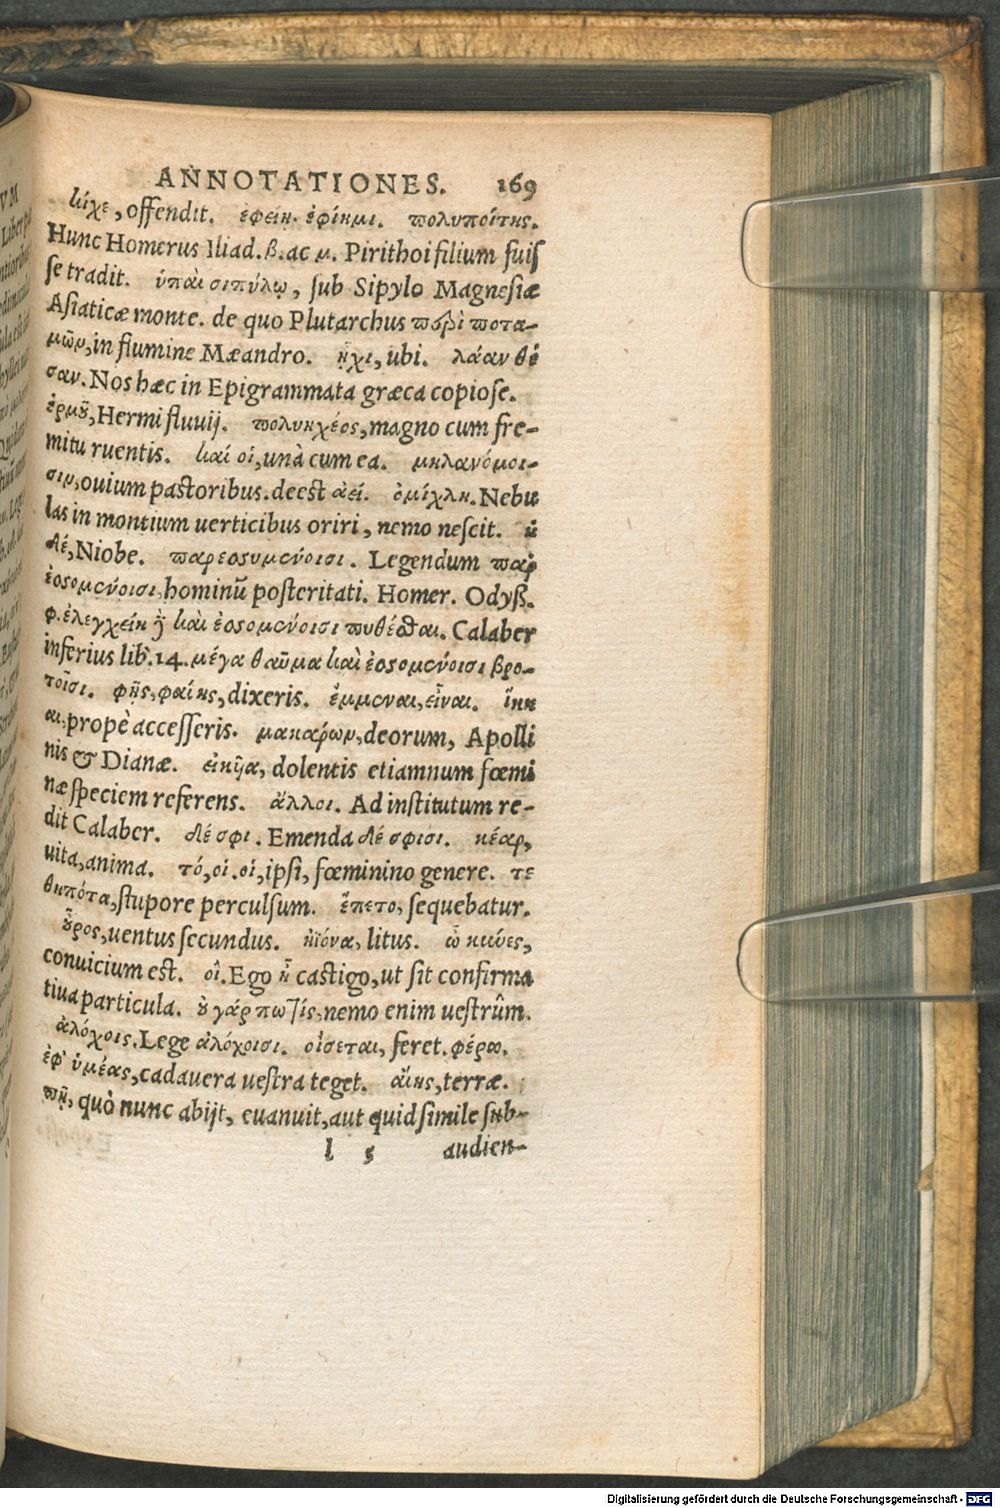 ANNOTATIONES. 169
κίχε, offendit. ἐφείη. ἐφίημι. πολυποίτης.
Hunc Homerus Iliad. β. ac μ. Pirithoi filium fuiſ
ſe tradit. ὑπαὶ σιπύλῳ, ſub Sipylo Magneſiæ
Aſiaticæ monte. de quo Plutarchus περὶ ποτα-
μῶν, in flumine Mæandro. ᾗχι, ubi. λάαν θέ
σαν. Nos hæc in Epigrammata græca copioſe.
ἑρμου, Hermi fluuij. πολυηχέος, magno cum fre-
mitu ruentis. καί οἱ, unà cum ea. μηλανόμοι-
σιν, ouium paſtoribus. deeſt ἀεί. ὀμίχλη. Nebu
las in montium uerticibus oriri, nemo neſcit. ἡ
δέ, Niobe. παρεοσυμένοισι. Legendum παρ
ἐοσομένοισι, hominũ poſteritati. Homer. Odyß.
φ. ἐλεγχείη καὶ ἐοσομένοισι πυθέσθαι. Calaber
inferius lib. 14. μέγα θαῦμα καὶ ἐοσομένοισι βρο-
τοῖσι. φῇς, φαίης, dixeris. ἔμμεναι, εἶναι. ἵκη
αι, propè acceſſeris. μακάρων, deorum, Apolli
nis & Dianæ. εἰκυῖα, dolentis etiamnum fœmi
næ ſpeciem referens. ἄλλοι. Ad inſtitutum re-
dit Calaber. δέ σφι. Emenda δέ σφισι. κέαρ,
uita, anima. τό, οἱ. οἱ, ipſi, fœminino genere. τε
θηπότα, ſtupore perculſum. ἕπετο, ſequebatur.
οὖρος, uentus ſecundus. ἠϊόνα, litus. ὦ κύνες,
conuicium eſt. οἳ. Ego ἦ caſtigo, ut ſit confirma
tiua particula. οὐ γάρ πω τίς, nemo enim ueſtrûm.
ἀλόχοις. Lege ἀλόχοισι. οἴσεται, feret. φέρω.
ἐφ' ὑμέας, cadauera ueſtra teget. αἴης, terræ.
πῇ, quò nunc abijt, euanuit, aut quid ſimile ſub-
l 5 audien-
Digitalisierung gefördert durch die Deutsche Forschungsgemeinschaft - DFG